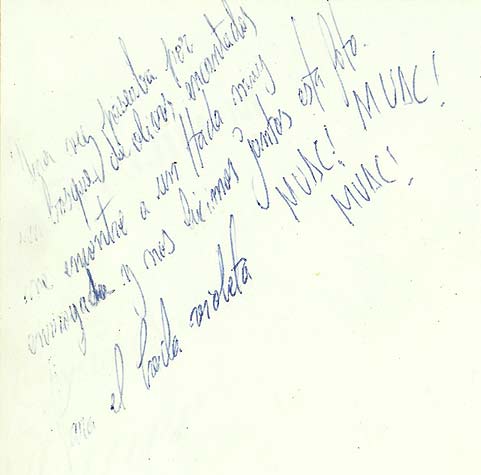 Una vez paseaba por
un bosque de olivos encantados
me encontré a un Hada muy
y nos hicimos juntos esta foto.
MUAC! MUAC!
MUAC!
el hada violeta